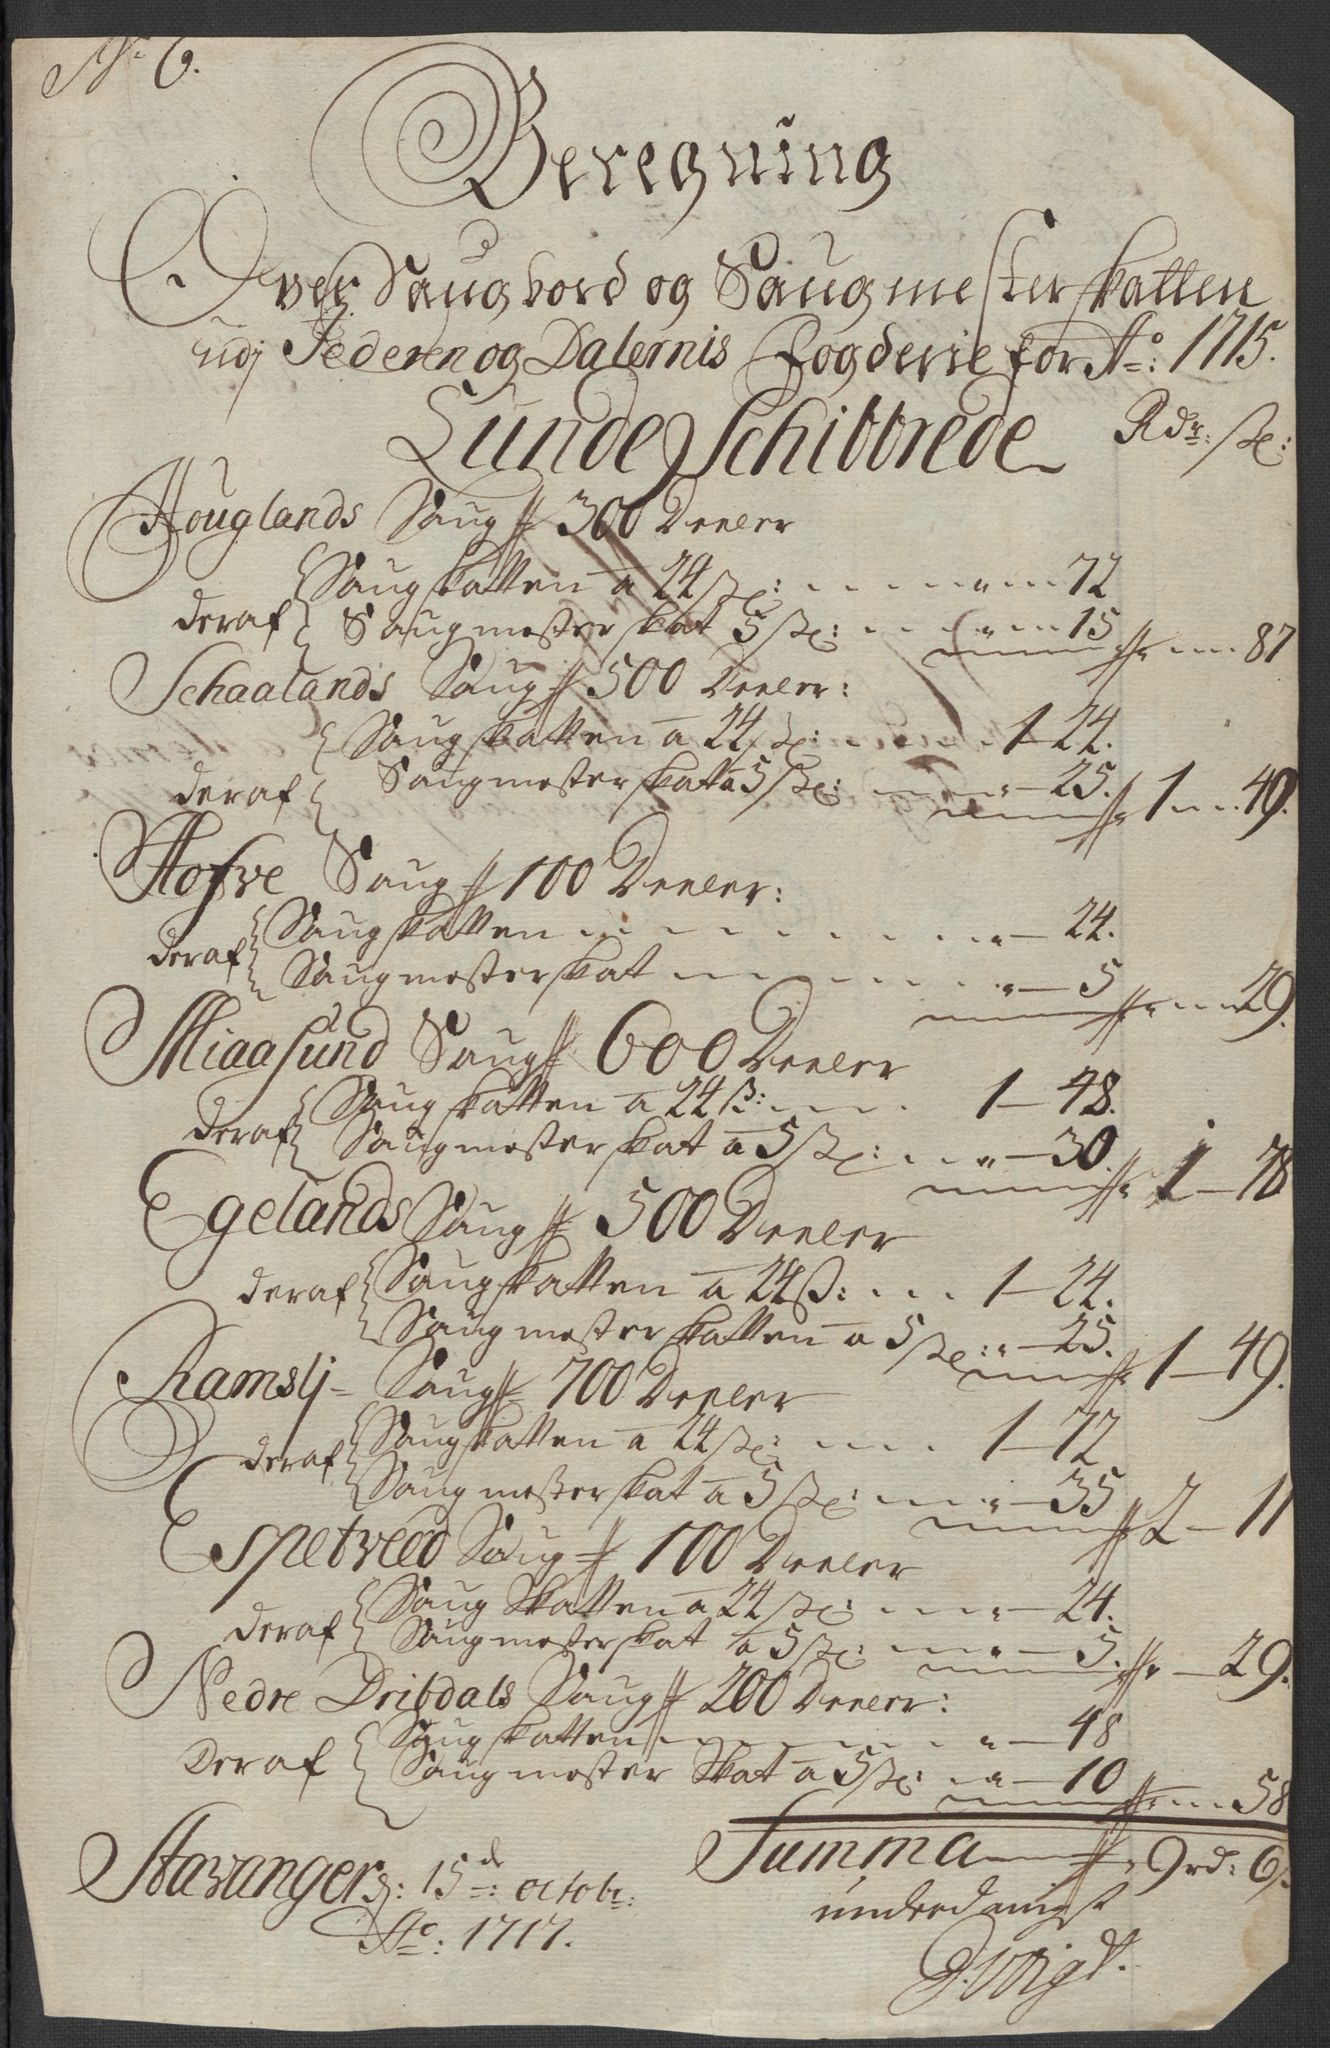 No. 6.
Beregning
Over Saugbord og Saugmester skatten
udj Jederen og Dalernis Fogderie for Ao: 1715.
Lunde Schibbrede Rdr: sk:
Houglands Saug 300 Deeler
deraf Saugskatten a 24 sk: . . . . . . " — 72
Saugmesterskat 5 sk: . . . . " — 15 " — 87
Schaalands Saug 500 Deeler:
Saugskatten a 24 sk: . . . . . 1 - 24.
deraf Saugmesterskat a 5 sk: . . . " — 25. 1 — 49.
Hofve Saug 100 Deeler:
deraf Saugskatten . . . . . . . . . " — 24.
Saugmesterskat . . . . . . . " — 5 " — 29.
Miaasund Saug 600 Deeler
deraf Saugskatten a 24 ß: . . . . 1 — 48.
Saugmesterskat a 5 sk: . . " — 30. 1 — 78
Egelands Saug 500 Deeler
deraf Saugskatten a 24 ß: . . . 1 - 24.
Saugmesterskatten a 5 sk: " — 25. 1 — 49.
Ramslj- Saug 700 Deeler
deraf Saugskatten a 24 sk: . . . . 1 — 72
Saugmesterskat a 5 sk: . . " — 35 2 — 11
Espetveed Saug 100 Deeler
deraf Saug Skatten a 24 sk: . . . " — 24.
Saugmesterskat a 5 sk: . . . " — 5. " — 29.
Nedre Dribdals Saug 200 Deeler:
Deraf Saugskatten . . . . . . . . " — 48
Saugmester Skat a 5 sk: . . " — 10 " — 58
Stavanger d: 15de: octobr: Summa — 9 rd: 6 s
Ao: 1717. underdanigst